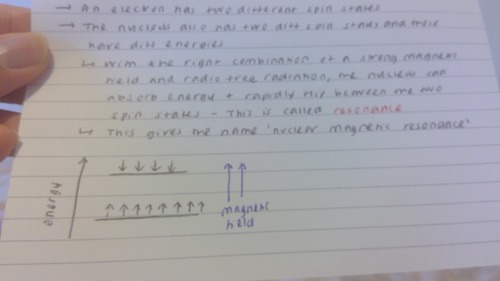 → An electron has two different spin states
→ The nucleus also has two diff spin states and these
have diff energies
↳ With the right combination of a strong magnetic
field and radio freq radiation, the nucleus can
absorb energy + rapidly flip between the two
spin states - This is called resonance
↳ This gives the name 'nuclear magnetic resonance'
energy
magnetic
field